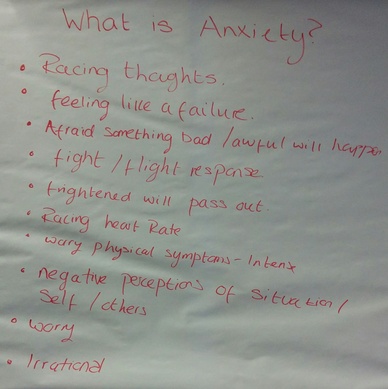 What is Anxiety?
• Racing thoughts.
• feeling like a failure.
• Afraid something bad /awful will happen
• fight / flight response
• frightened will pass out.
• Racing heart Rate
• wory physical symptoms - Intense
• negative perceptions of situation /
Self / others
• worry
• Irrational